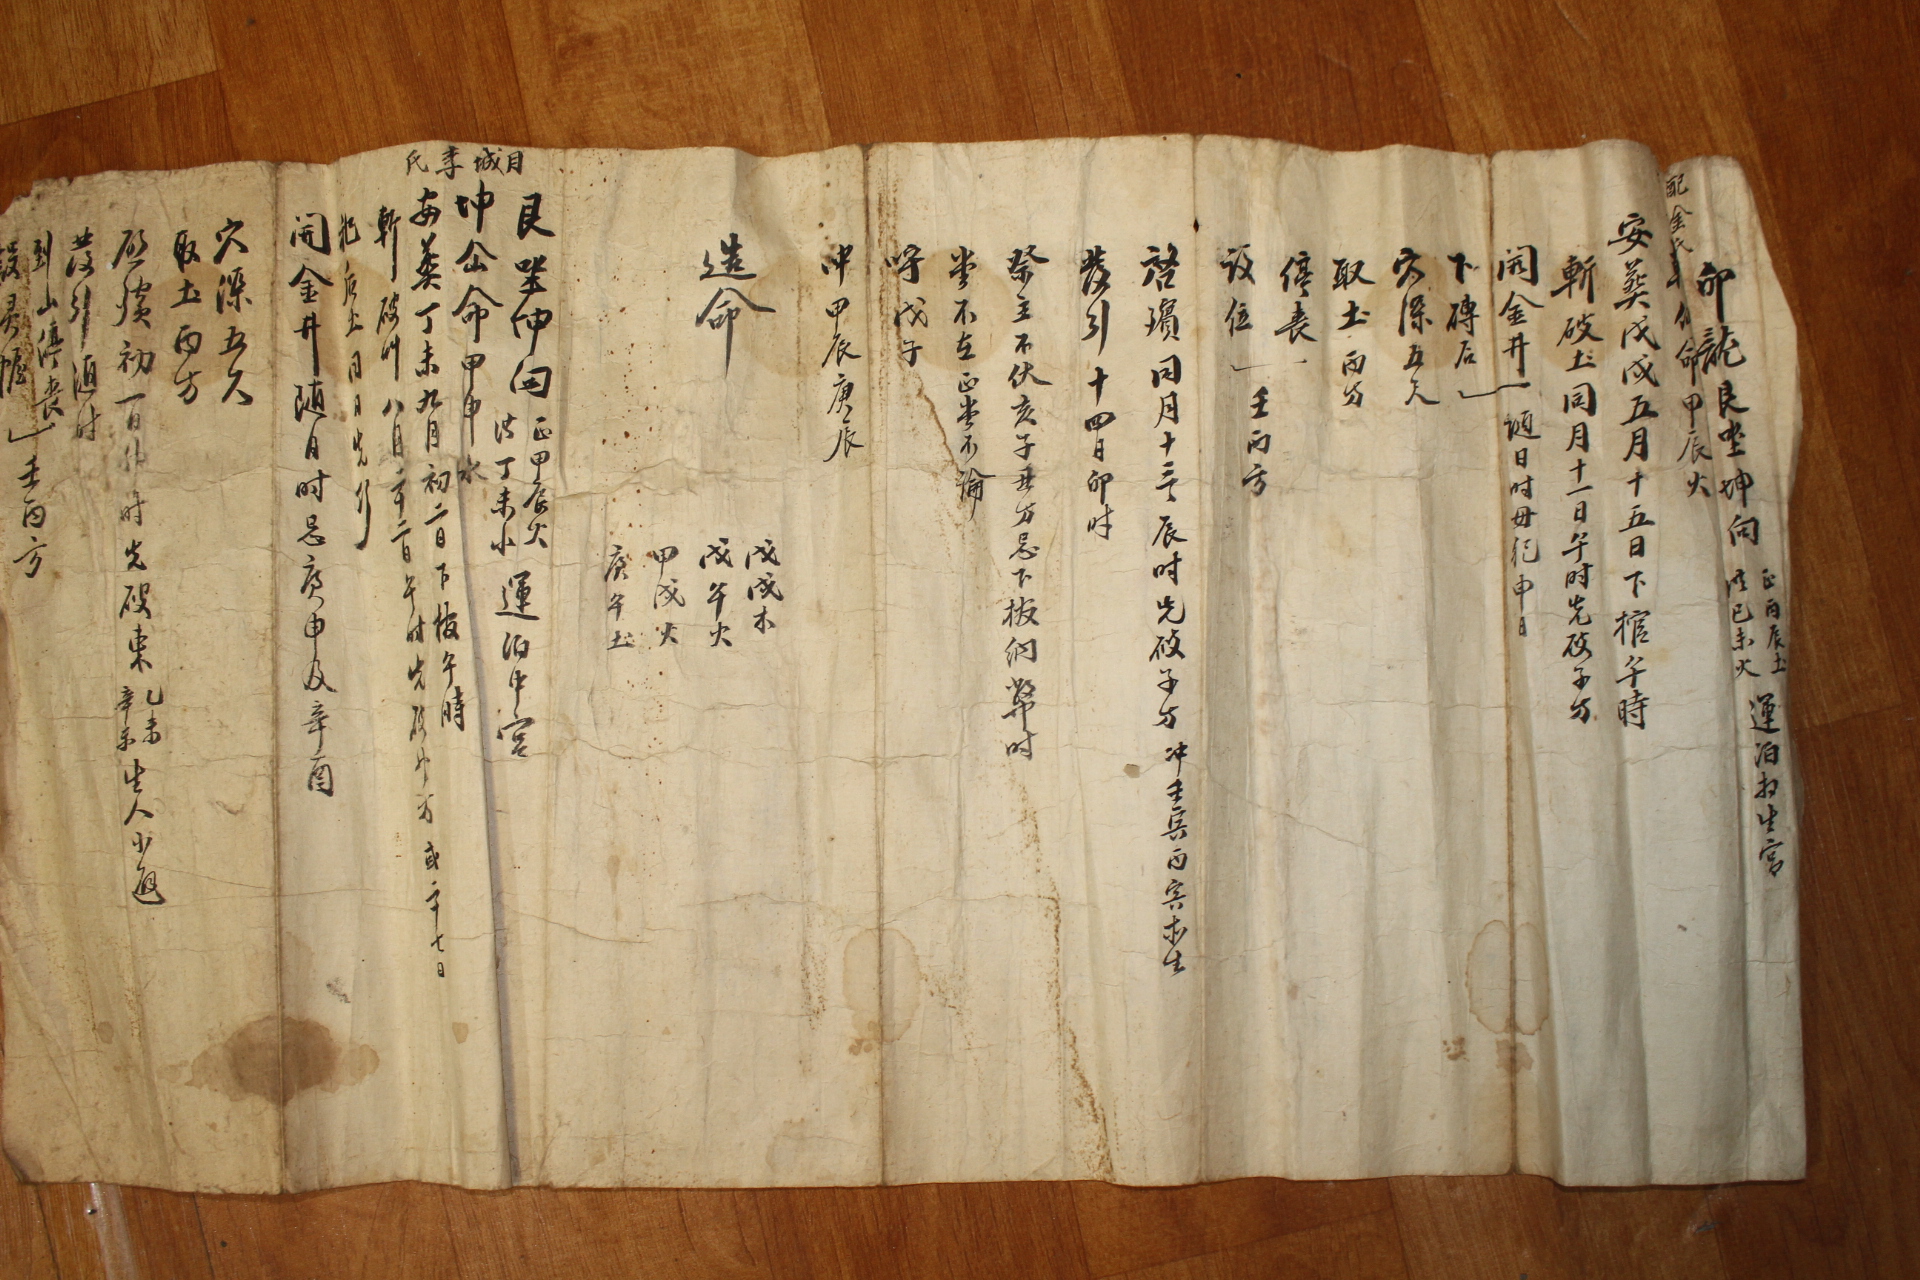 卯龍艮坐坤向
正丙辰土
己未火
運泊生宮
配金氏
命甲辰火
安葬戊戌五月十五日下棺午時
斬破土同月十一日午时先破子方
開金井
下磚后
随日时毋犯申日
穴深五尺
取土丙方
停喪
設位
壬丙方
啓殯同月十三辰时先破子方冲壬寅丙寅生
發引十四日卯时
祭主不伏亥子丑方忌下板納幣时
坐不在正坐不論
呼戊子
冲甲辰庚辰
造命
戊戌木
戊午火
甲戌火
庚午土
艮坐坤向
正甲辰火
丁未水
運泊中宮
坤命甲申水
李氏
安葬丁未九月初二日下板午時
斬破八月二日午时先破方或七日
犯后土同日先行
開金井随日时忌庚申及辛酉
穴深五尺
取土丙方
啟殯初一日卯时先破東
乙未
辛未
生人小避
發引随时
到山停喪
設灵幄
壬丙方